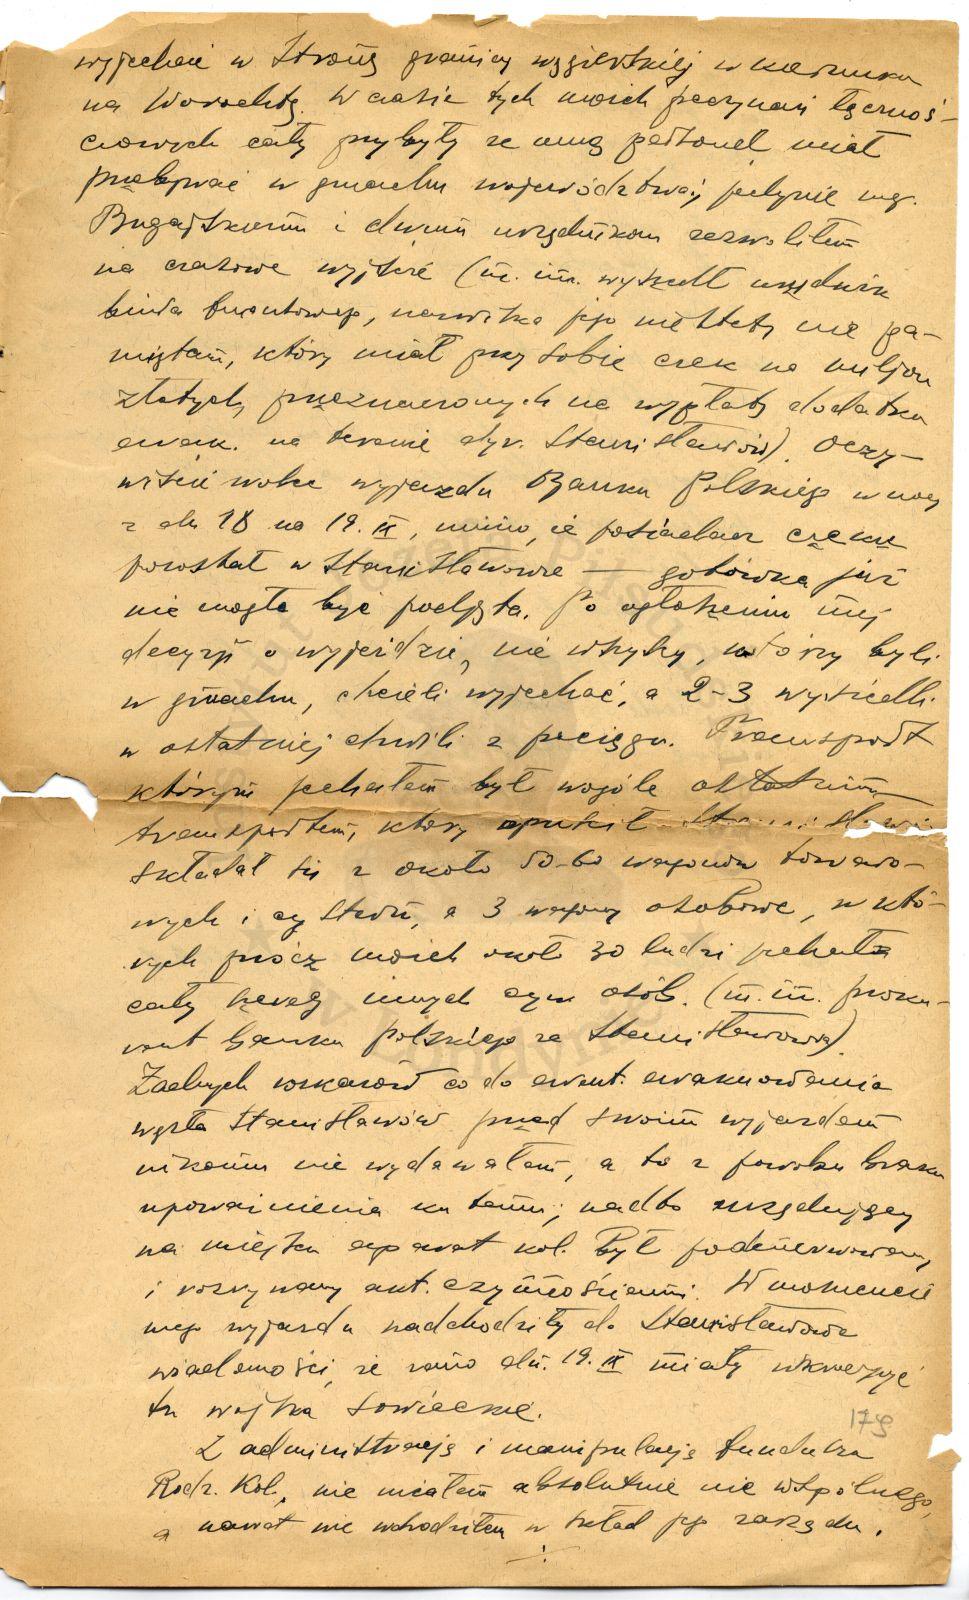 wyjechać w stronę granicy węgierskiej w kierunku
na Worochtę. W czasie tych moich poczynań łącznoś-
ciowych cały przybyły ze mną personel miał
przebywać w gmachu województwa, jedynie mgr.
Bugajskiemu i dwum urzędnikom zezwoliłem
na czasowe wyjście (m. im. wyszedł urzędnik
biura finansowego, nazwiska jego niestety nie pa-
miętam, który miał przy sobie czek na miljon
złotych, przeznaczonych na wypłatę dodatku
ewak. na terenie dyr. Stanisławów). Oczy-
wiście wobec wyjazdu Banku Polskiego w nocy
z dn 18 na 19. IX, mimo, że posiadacz czeku
pozostał w Stanisławowie — gotówka już
nie mogła być podjęta. Po ogłoszeniu mej
decyzji o wyjeździe, nie wszyscy, którzy byli
w gmachu, chcieli wyjechać, a 2-3 wysiedli
w ostatniej chwili z pociągu. Transport
którym jechałem był wogóle ostatnim
transportem, który opuścił Stanisławów
składał się z około 50-60 wagonów towaro-
wych i cystern, a 3 wagony osobowe, w któ-
rych prócz moich około 30 ludzi jechało
cały szereg innych cyw osób. (m. in. proku-
rent Banku Polskiego ze Stanisławowa)
Żadnych wskazówek co do ewent. ewakuowania
węzła Stanisławów przed swoim wyjazdem
nikomu nie wydawałem, a to z powodu braku
upoważnienia ku temu; nadto urzędujący
na miejscu aparat kol. był podenerwowany
i rozrywany czynnościami. W momencie
mego wyjazdu nadchodziły do Stanisławowa
wiadomości, że rano dn. 19. IX miały wkroczyć
tu wojska sowieckie.
179
Z administracją i manipulacją funduszu
Rodz. Kol. nie miałem absolutnie nic wspólnego,
a nawet nie wchodziłem w skład jego zarządu.